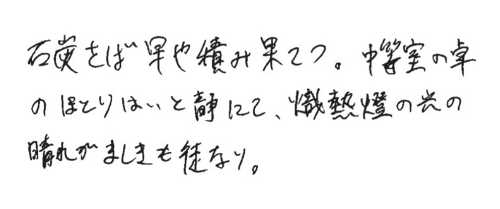 石炭をば早や積み果てつ。中等室の卓
のほとりはいと静にて、熾熱燈の光の
晴れがましきも徒なり。